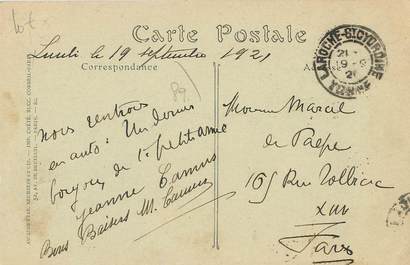 Carte Postale
Lundi le 19 septembre 1921
Correspondance
LAROCHE-ST CYDROINE
21
19-9
21
YONNE
89
nous rentrons
en auto. Un dernier
bonjour de ta petite amie
Jeanne Camus
Bons Baisers M. Camus
Monsieur Marcel
de Paepe
165 Rue Tolbiac
XIII
Paris